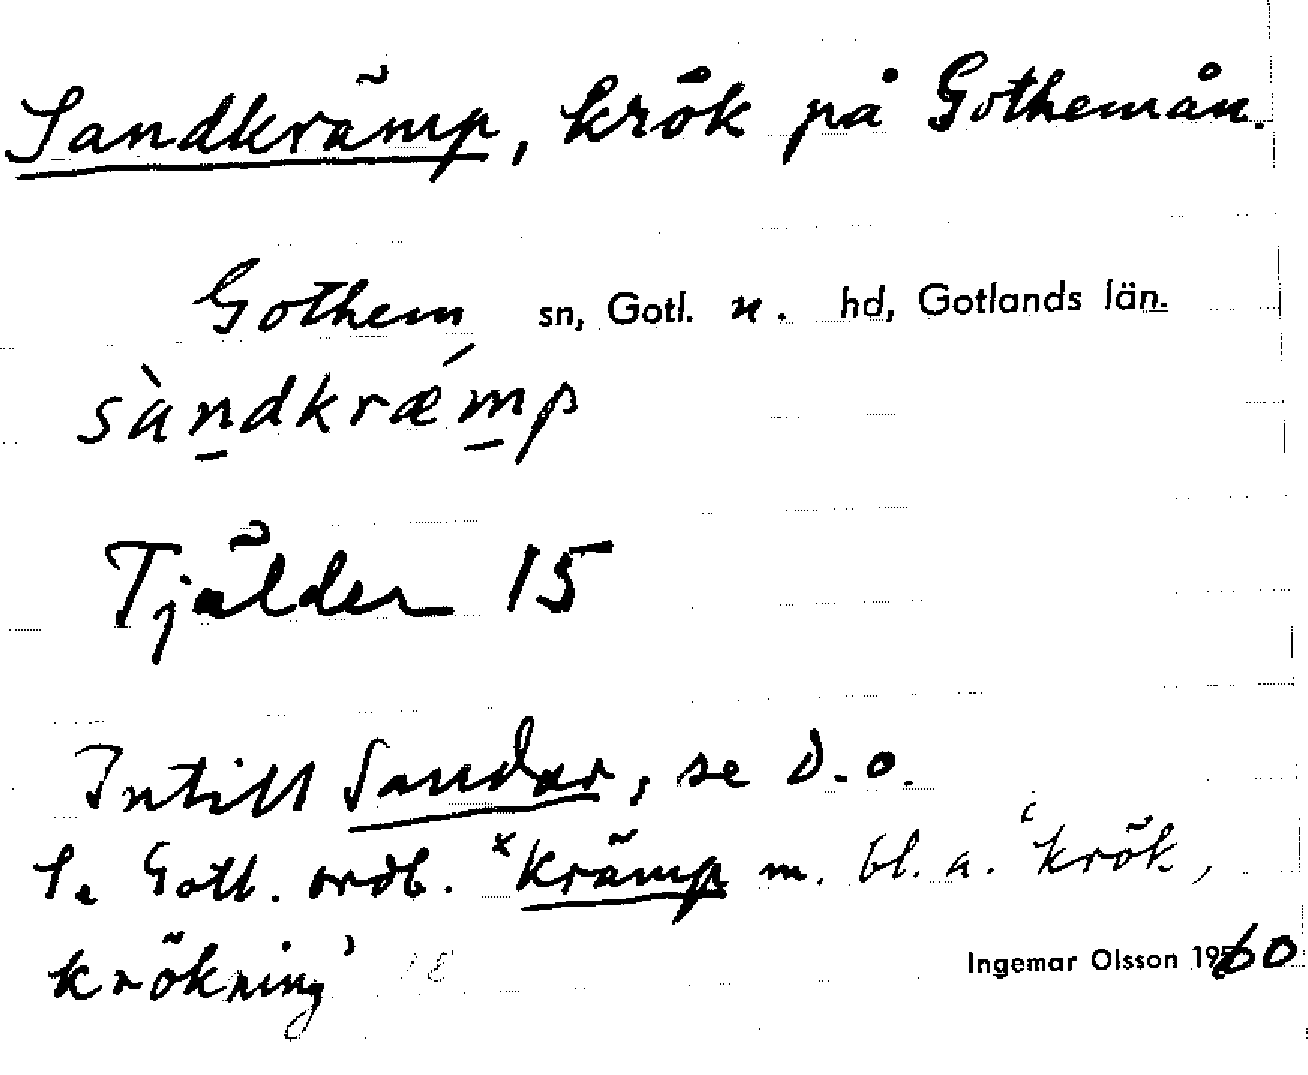 Sandkrämp, krök på Gothemån.
Gothem sn, Gotl. n. hd, Gotlands län.
sàndkræ̀mp
Tjälder 15
Intill Sandar, se d.o.
Se Gotl. ordb. *krämp m. bl. a. 'krök,
krökning'
Ingemar Olsson 1960